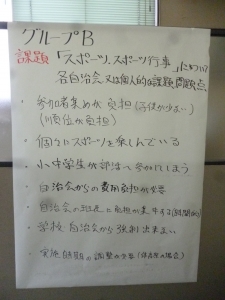 グループB
課題 「スポーツ、スポーツ行事」について
各自治会又は個人的な課題、問題点
・参加者集めが負担(子供が少ない)
(順位が負担)
・個々にスポーツを楽しんでいる
・小中学生が部活へ参加してしまう
・自治会からの費用負担が必要
・自治会の班長に負担が集中する
・学校、自治会から強制出来ない
・実施時期の調整が必要